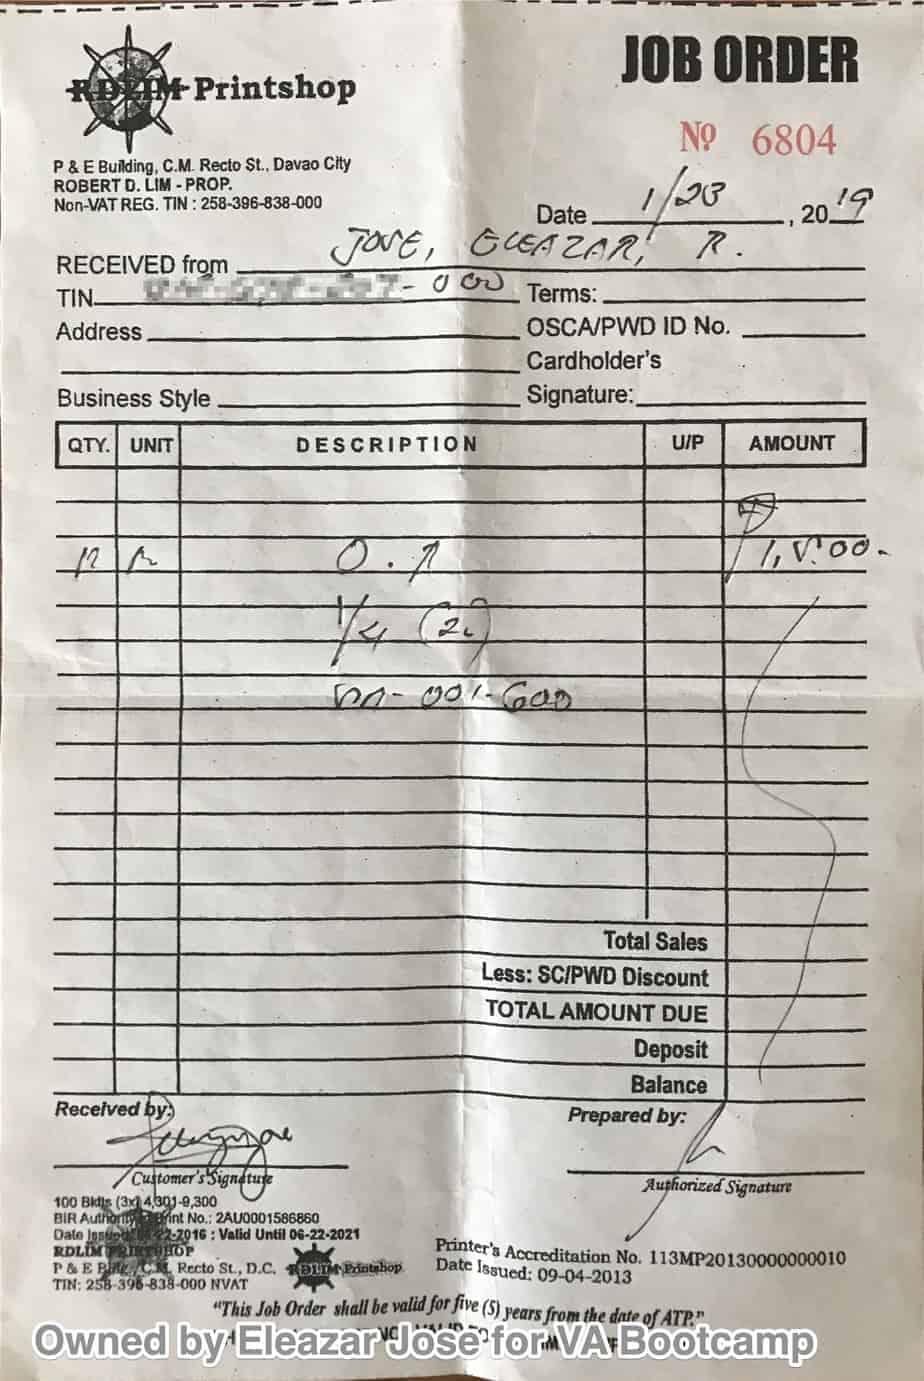 RDLIM Printshop
JOB ORDER
Nº 6804
P & E Building, C.M. Recto St., Davao City
ROBERT D. LIM - PROP.
Non-VAT REG. TIN : 258-396-838-000
Date 1/23, 2019
RECEIVED from JOSE, ELEAZAR, R.
TIN - 000 Terms:
Address OSCA/PWD ID No.
Cardholder's
Business Style Signature:
QTY. UNIT DESCRIPTION U/P AMOUNT
1/4 (2)
Total Sales
Less: SC/PWD Discount
TOTAL AMOUNT DUE
Deposit
Balance
Received by: Prepared by:
Customer's Signature
Authorized Signature
100 Bklts (3x) 4,301-9,300
BIR Authority Print No.: 2AU0001586860
Date Issued -22-2016 ; Valid Until 06-22-2021
RDLIM PRINTSHOP
P & E Bldg., C.M. Recto St., D.C. RDLIM Printshop
TIN: 258-396-838-000 NVAT
Printer's Accreditation No. 113MP20130000000010
Date Issued: 09-04-2013
"This Job Order shall be valid for five (5) years from the date of ATP."
Owned by Eleazar Jose for VA Bootcamp